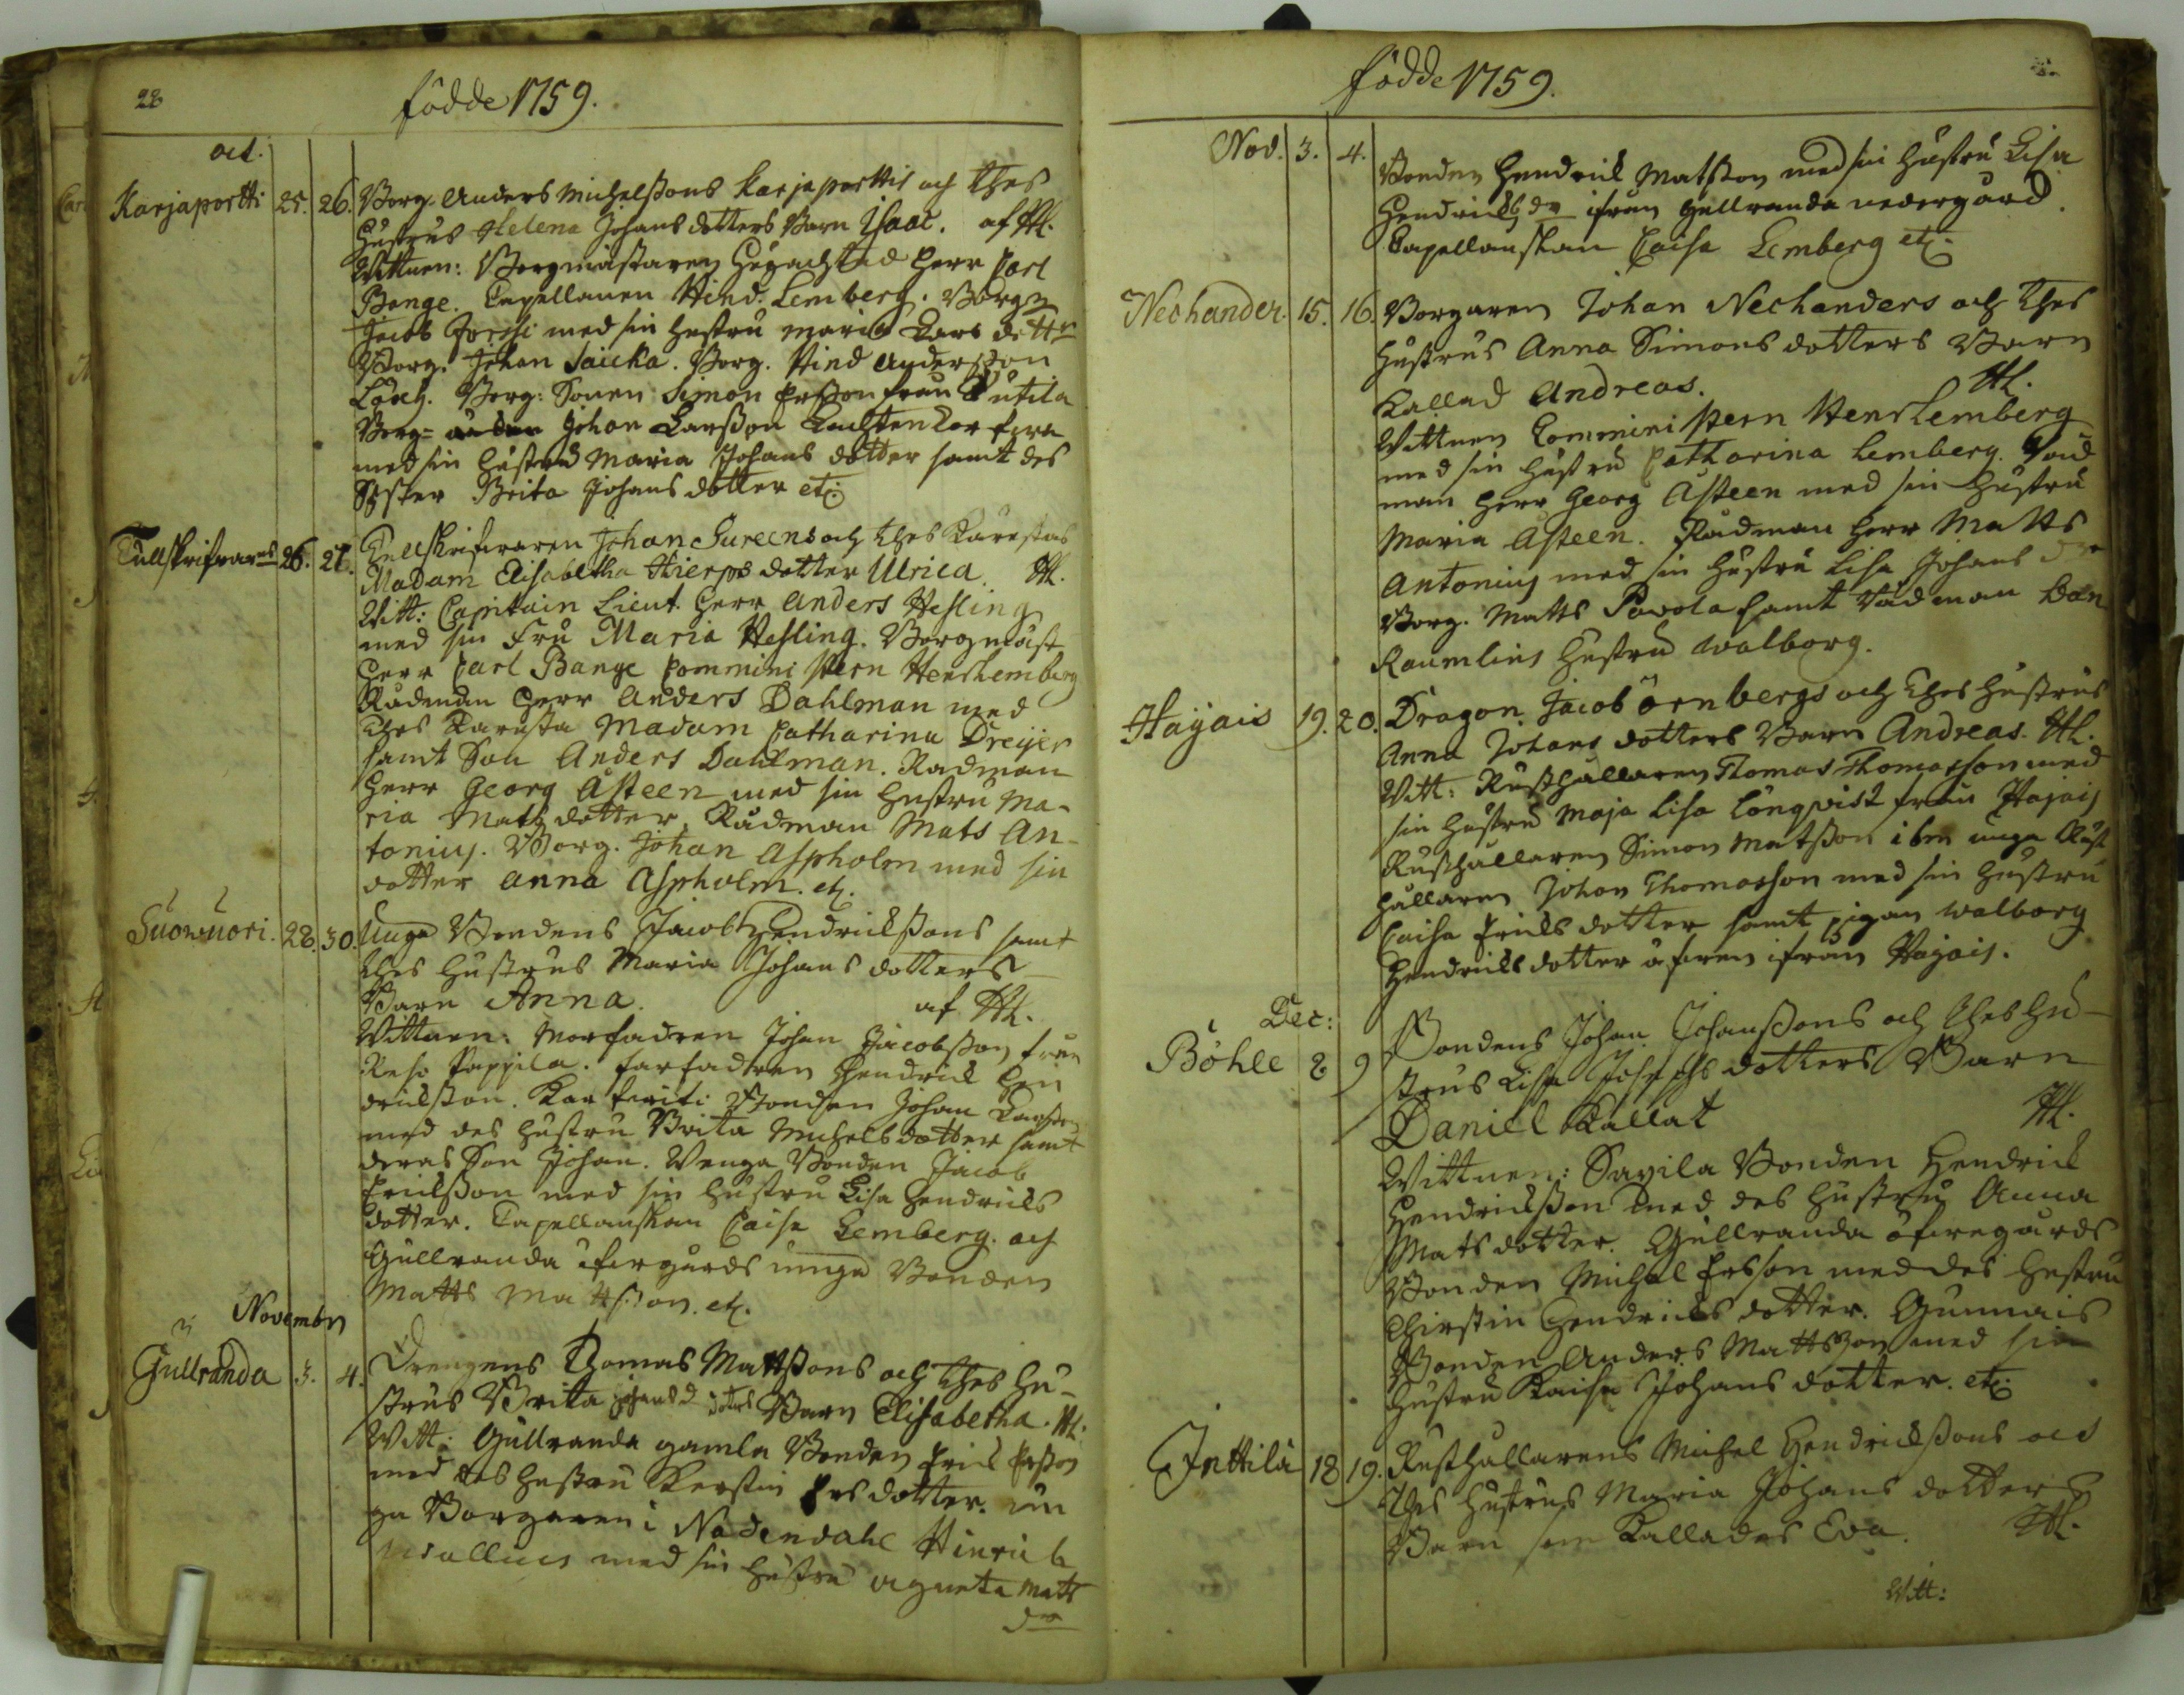 28
födde 1759.
oct.
Karjaportti 25. 26. Borg. Anders Michelssons Karjaporttis och thes
Hustrus Helena Johans dotters Barn Isaac. af HL.
Wittnen: Borgmästaren Högachtad Herr Carl
Bange. Capellanen Hind. Lemberg. Borg.
Jacob med sin hustru Maria Lars dottr
Borg. Johan Saicka. Borg. Hind Andersson
Borg: Sonen Simon Ersson från
Borg= Johan Larsson
med sin hustru Maria Johans dotter samt des
Syster Brita Johans dotter etc:
Tullskrifvarns 26. 27. Tullskrifvaren Johan Sureens och thes Kärestas
Madam Elisabetha Hierps dotter Ulrica. HL.
Witt: Capitain Lieut. Herr Anders Hesling
med sin Fru Maria Hesling. Borgmäst
Herr Carl Bange Comministern Henr Lemberg
Rådman Herr Anders Dahlman med
thes Käresta Madam Catharina Dreijer
samt Son Anders Dahlman. Radman
Herr Georg Åsteen med sin Hustru Ma-
ria Mats dotter, Rådman Mats An-
tonius. Borg. Johan Aspholm med sin
dotter Anna Aspholm. etc.
Suowuori. 28. 30. Unga Bondens Jacob Hendrickssons samt
thes Hustrus Maria Johans dotters
Barn Anna. af HL.
Wittnen: Morfadren Johan Jacobsson från
Reso Pappila. farfadren Hendrick Hen
dricksson. Bonden Johan Larsson
med des hustru Brita Michels dotter samt
deras Son Johan. Wenga Bonden Jacob
Ericksson med sin hustru Lisa Hendricks
dotter. Capellanskan Caisa Lemberg. och
Gullranda öfvergårds unga Bonden
Matts Mattsson. etc.
Novembr
Gullranda 3. 4. Drengens Thomas Mattssons och thes Hu-
strus Brita Johans dotters Barn Elisabetha. HL.
Witt: Gullranda gamla Bonden Erick Ersson
med des hustru Kerstin Ers dotter. un
ga Borgaren i Nådendahl Hinrick
med sin hustru Agneta Matts
dr
födde 1759.
Nov. 3. 4. Bonden Hendrick Matsson med sin hustru Lisa
Hendricks dr ifrån Gullranda nedergård.
Capellanskan Caisa Lemberg etc.
Nechander. 15. 16. Borgaren Johan Nechanders och thes
Hustrus Anna Simons dotters Barn
kallad Andreas. HL.
Wittnen Comministern Henr Lemberg
med sin hustru Catharina Lemberg. Råd
man Herr Georg Åsteen med sin hustru
Maria Åsteen. Rådman Herr Matts
Antonius med sin hustru Lisa Johans dr
Borg. Matts Pavola samt Rådman Dan
Raumlins hustru Walborg.
Hayais 19. 20. Dragon. Jacob Örnbergs och thes hustrus
Anna Johans dotters Barn Andreas. HL.
Witt: Rusthållaren Thomas Thomasson med
sin hustru Maja Lisa Lönqvist från Hajais
Rusthållaren Simon Matsson ibm unga Rust
hållaren Johan Thomasson med sin hustru
Caisa Ericks dotter samt pigan Walborg
Hendricksdotter äfven ifrån Hajais.
Dec:
Böhle 8 9 Bondens Johan Johanssons och thes Hu-
strus Lisa Josephs dotters Barn
Daniel kallat HL.
Wittnen: Savila Bonden Hendrick
Hendricksson med des hustru Anna
Mats dotter. Gullranda öfvregårds
Bonden Michel Ersson med des hustru
Christin Hendricks dotter. Gunnais
Bonden Anders Mattsson med sin
hustru Kaisa Johans dotter. etc.
Inttila 18 19. Rusthållarens Michel Hendrickssons och
thes hustrus Maria Johans dotters
Barn som kallades Eva. HL.
Witt: